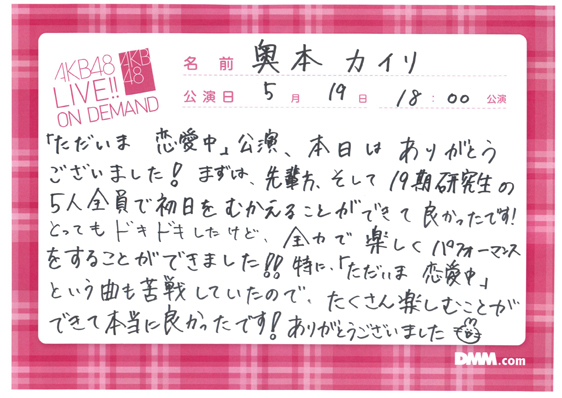 AKB48
LIVE!!
ON DEMAND
AKB
48
名前 奥本カイリ
公演日 5月19日 18:00 公演
「ただいま 恋愛中」公演、本日は ありがとう
ございました! まずは、先輩方、そして19期研究生の
5人全員で初日をむかえることができて良かったです!
とってもドキドキしたけど、全力で楽しくパフォーマンス
をすることができました!! 特に、「ただいま 恋愛中」
という曲も苦戦していたので、たくさん楽しむことが
できて本当に良かったです! ありがとうございました
DMM.com